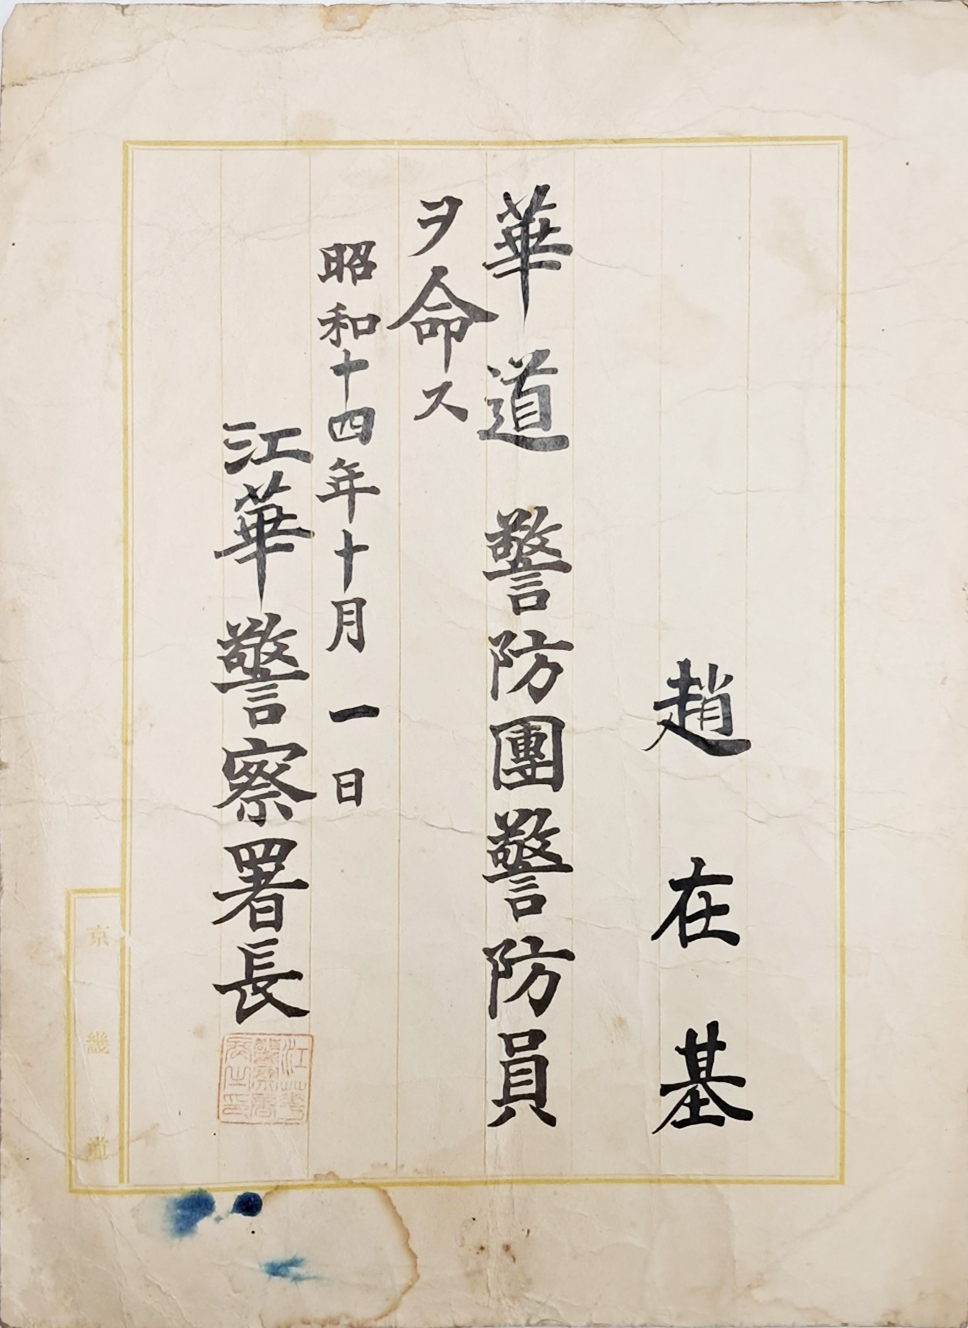 趙在基
華道警防團警防員
ヲ命ス
昭和十四年十月一日
江華警察署長
江華警察署長之印
京畿道